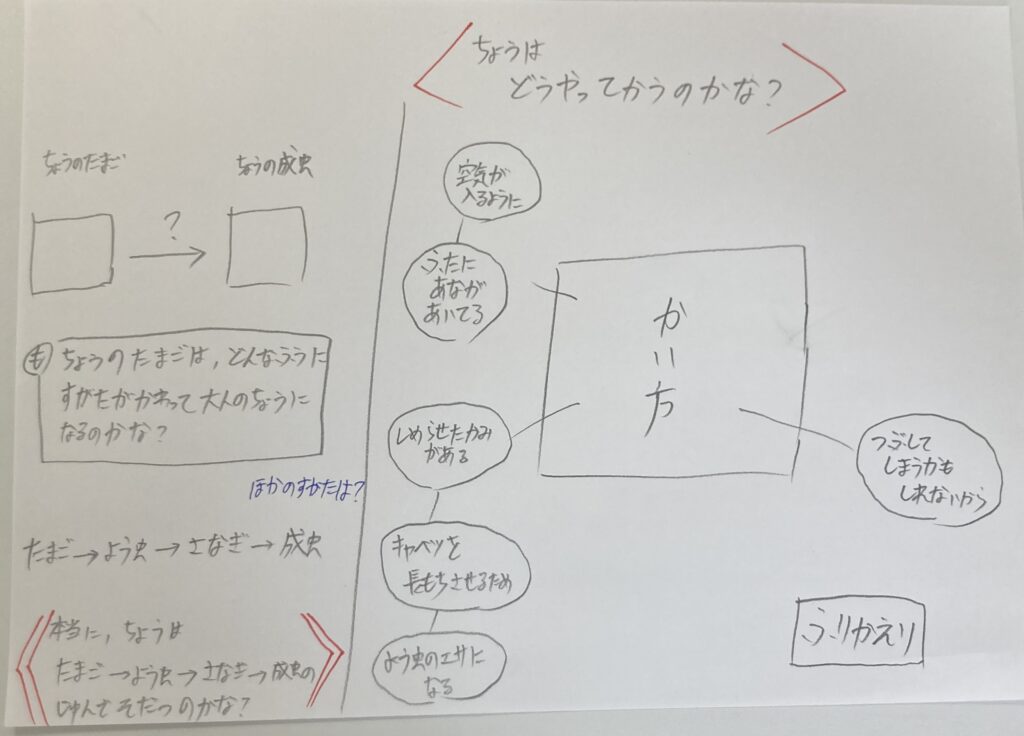 ちょうのたまご
ちょうの成虫
?
も
ちょうのたまごは,どんなふうに
すがたがかわって大人のちょうに
なるのかな?
ほかのすがたは?
たまご→よう虫→さなぎ→成虫
本当に,ちょうは
たまご→よう虫→さなぎ→成虫の
じゅんでそだつのかな?
ちょうは
どうやってかうのかな?
空気が
入るように
ふたに
あなが
あいてる
しめらせたかみ
がある
キャベツを
長もちさせるため
よう虫のエサに
なる
かいち
つぶして
しまうかも
しれないから
ふりかえり